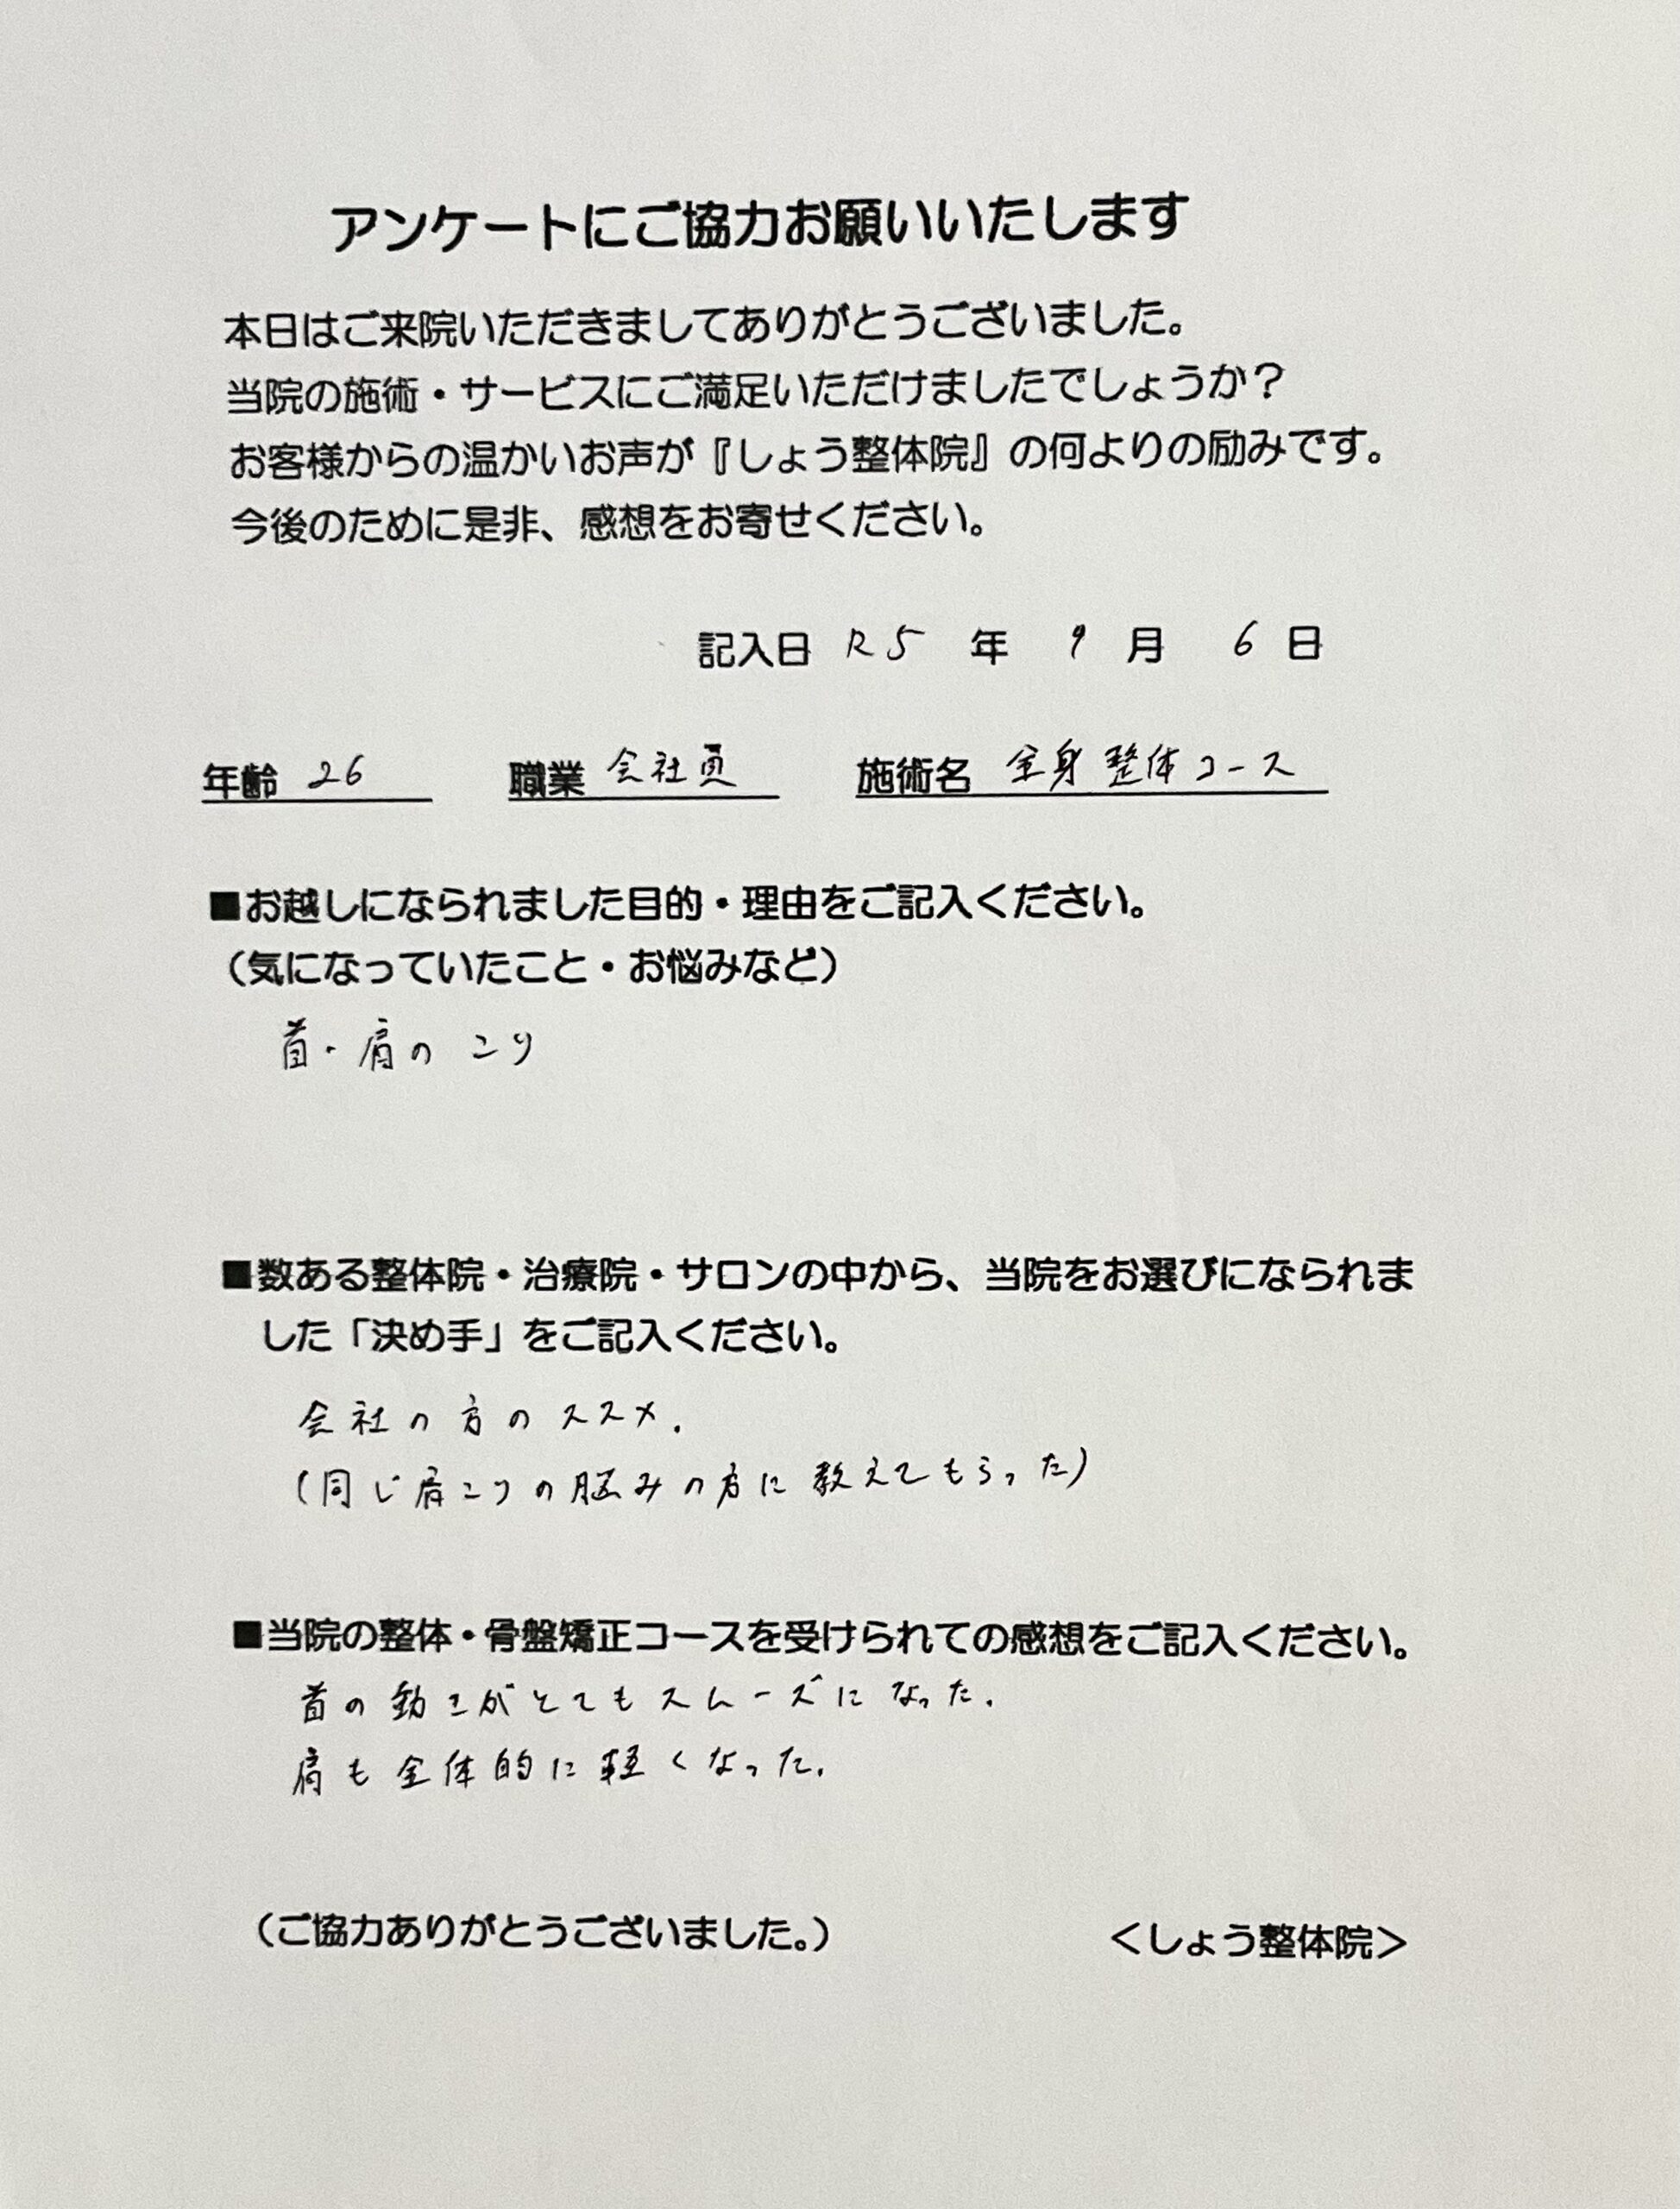 アンケートにご協力お願いいたします
本日はご来院いただきましてありがとうございました。
当院の施術・サービスにご満足いただけましたでしょうか？
お客様からの温かいお声が『しょう整体院』の何よりの励みです。
今後のために是非、感想をお寄せください。
記入日 R5 年 9 月 6 日
年齢 26 職業 会社員 施術名 全身整体コース
■お越しになられました目的・理由をご記入ください。
（気になっていたこと・お悩みなど）
首・肩のこり
■数ある整体院・治療院・サロンの中から、当院をお選びになられま
した「決め手」をご記入ください。
会社の方のススメ.
(同じ肩こりの悩みの方に教えてもらった)
■当院の整体・骨盤矯正コースを受けられての感想をご記入ください。
首の動きがとてもスムーズになった.
肩も全体的に軽くなった.
（ご協力ありがとうございました。） ＜しょう整体院＞